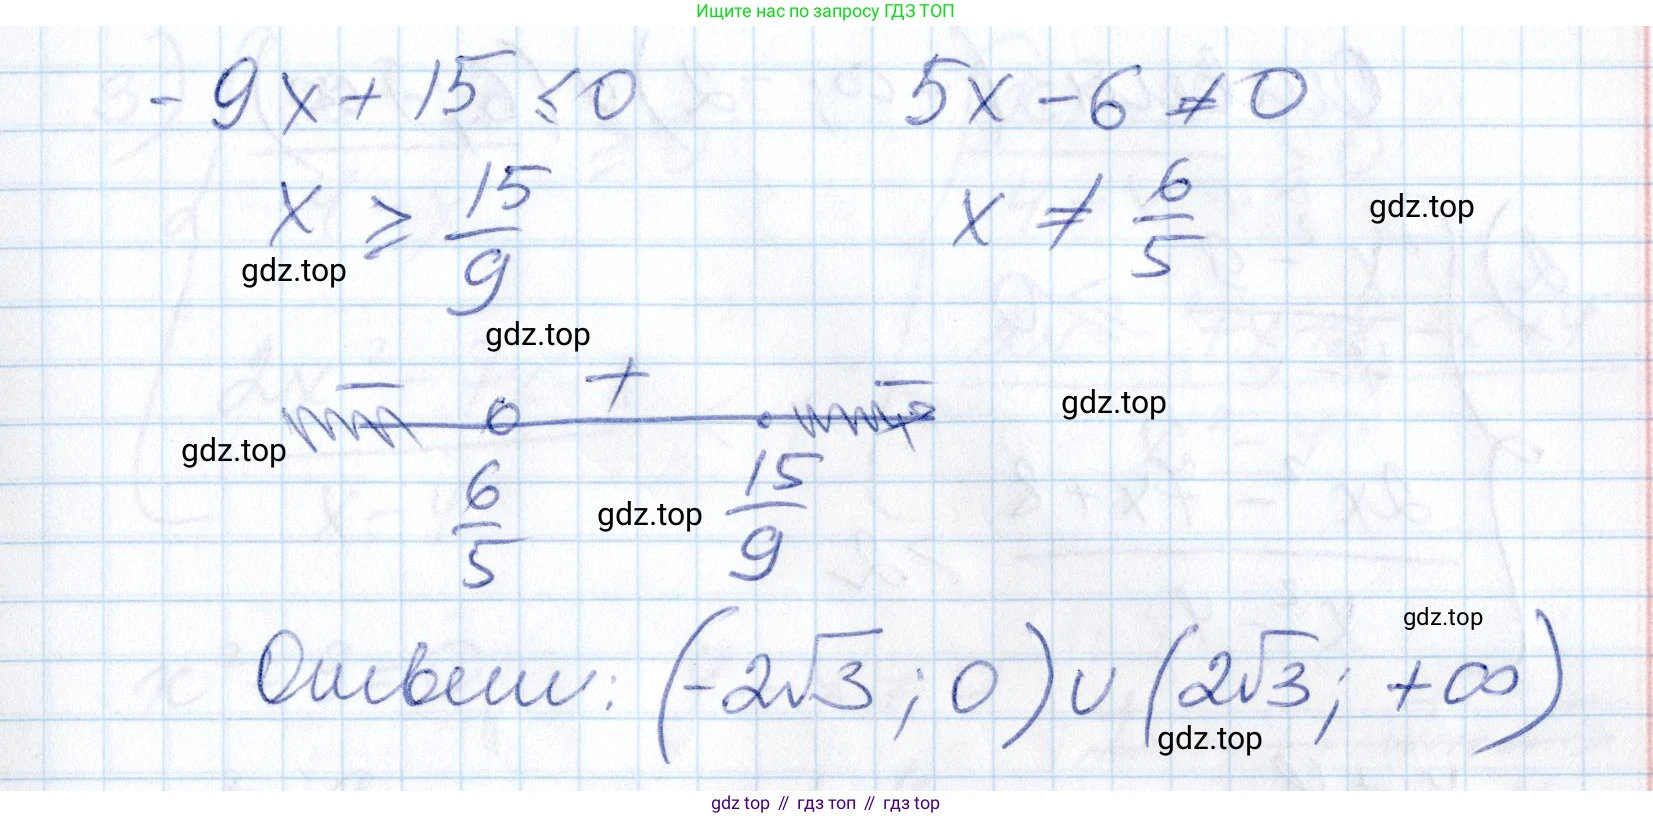 Ищите нас по запросу ГДЗ ТОП
-9x+15≤0 5x-6≠0
x ≥ 15/9 x ≠ 6/5
gdz.top
gdz.top
gdz.top
− + −
gdz.top
gdz.top
6/5 15/9
gdz.top
gdz.top
Ответ: (-2√3; 0) ∪ (2√3; +∞)
gdz.top
gdz top // гдз топ // gdz top